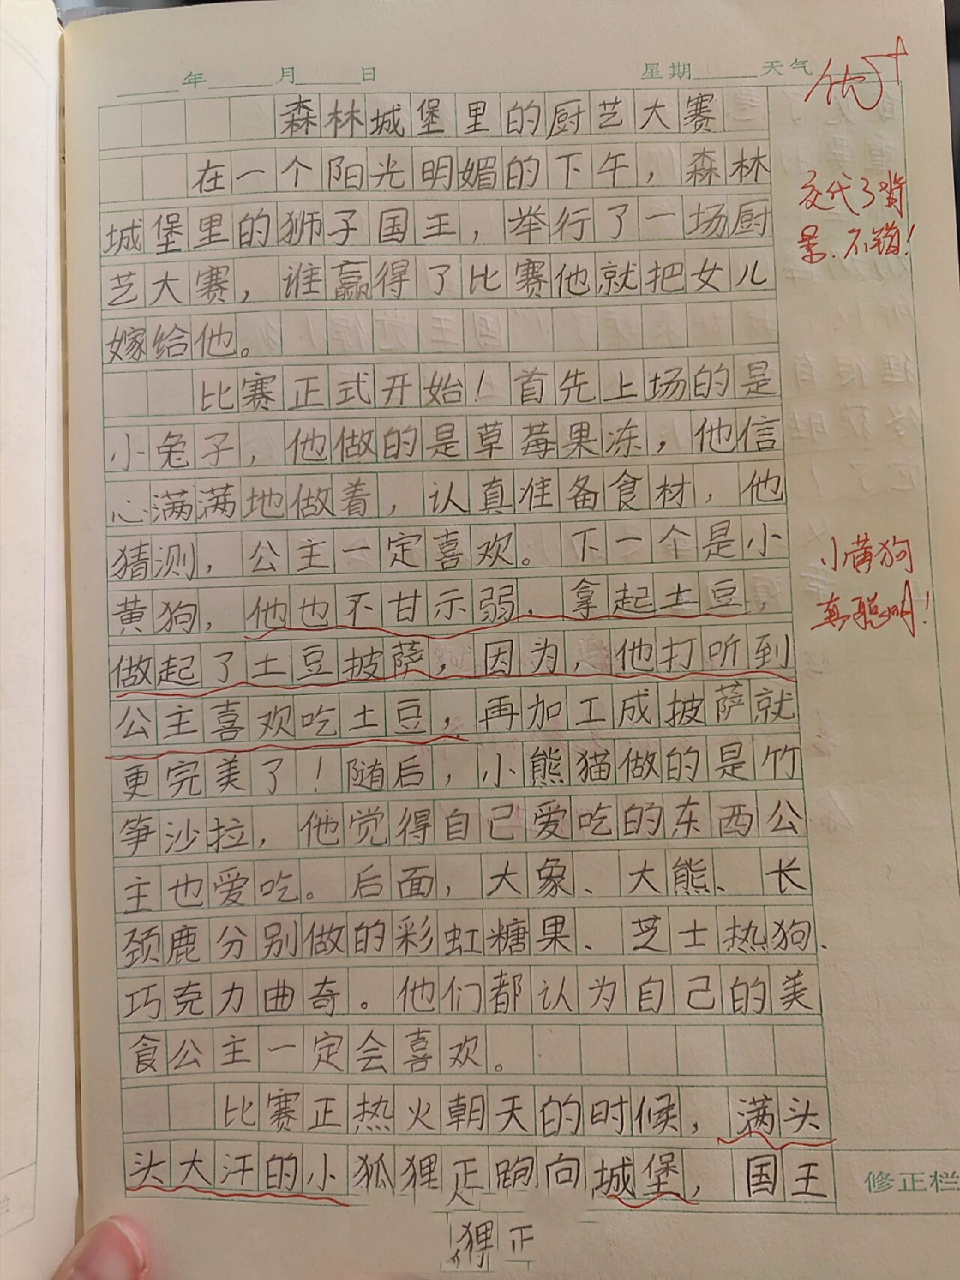 年 月 日 星期 天气
优+
森林城堡里的厨艺大赛
在一个阳光明媚的下午，森林
城堡里的狮子国王，举行了一场厨
艺大赛，谁赢得了比赛他就把女儿
嫁给他。
交代了背
景，不错！
比赛正式开始！首先上场的是
小兔子，他做的是草莓果冻，他信
心满满地做着，认真准备食材，他
猜测，公主一定喜欢。下一个是小
黄狗，他也不甘示弱，拿起土豆，
做起了土豆披萨，因为，他打听到
公主喜欢吃土豆，再加工成披萨就
小黄狗
真聪明！
更完美了！随后，小熊猫做的是竹
笋沙拉，他觉得自己爱吃的东西公
主也爱吃。后面，大象、大熊、长
颈鹿分别做的彩虹糖果、芝士热狗、
巧克力曲奇。他们都认为自己的美
食公主一定会喜欢。
比赛正热火朝天的时候，满头
头大汗的小狐狸正跑向城堡，国王
修正栏
狸正